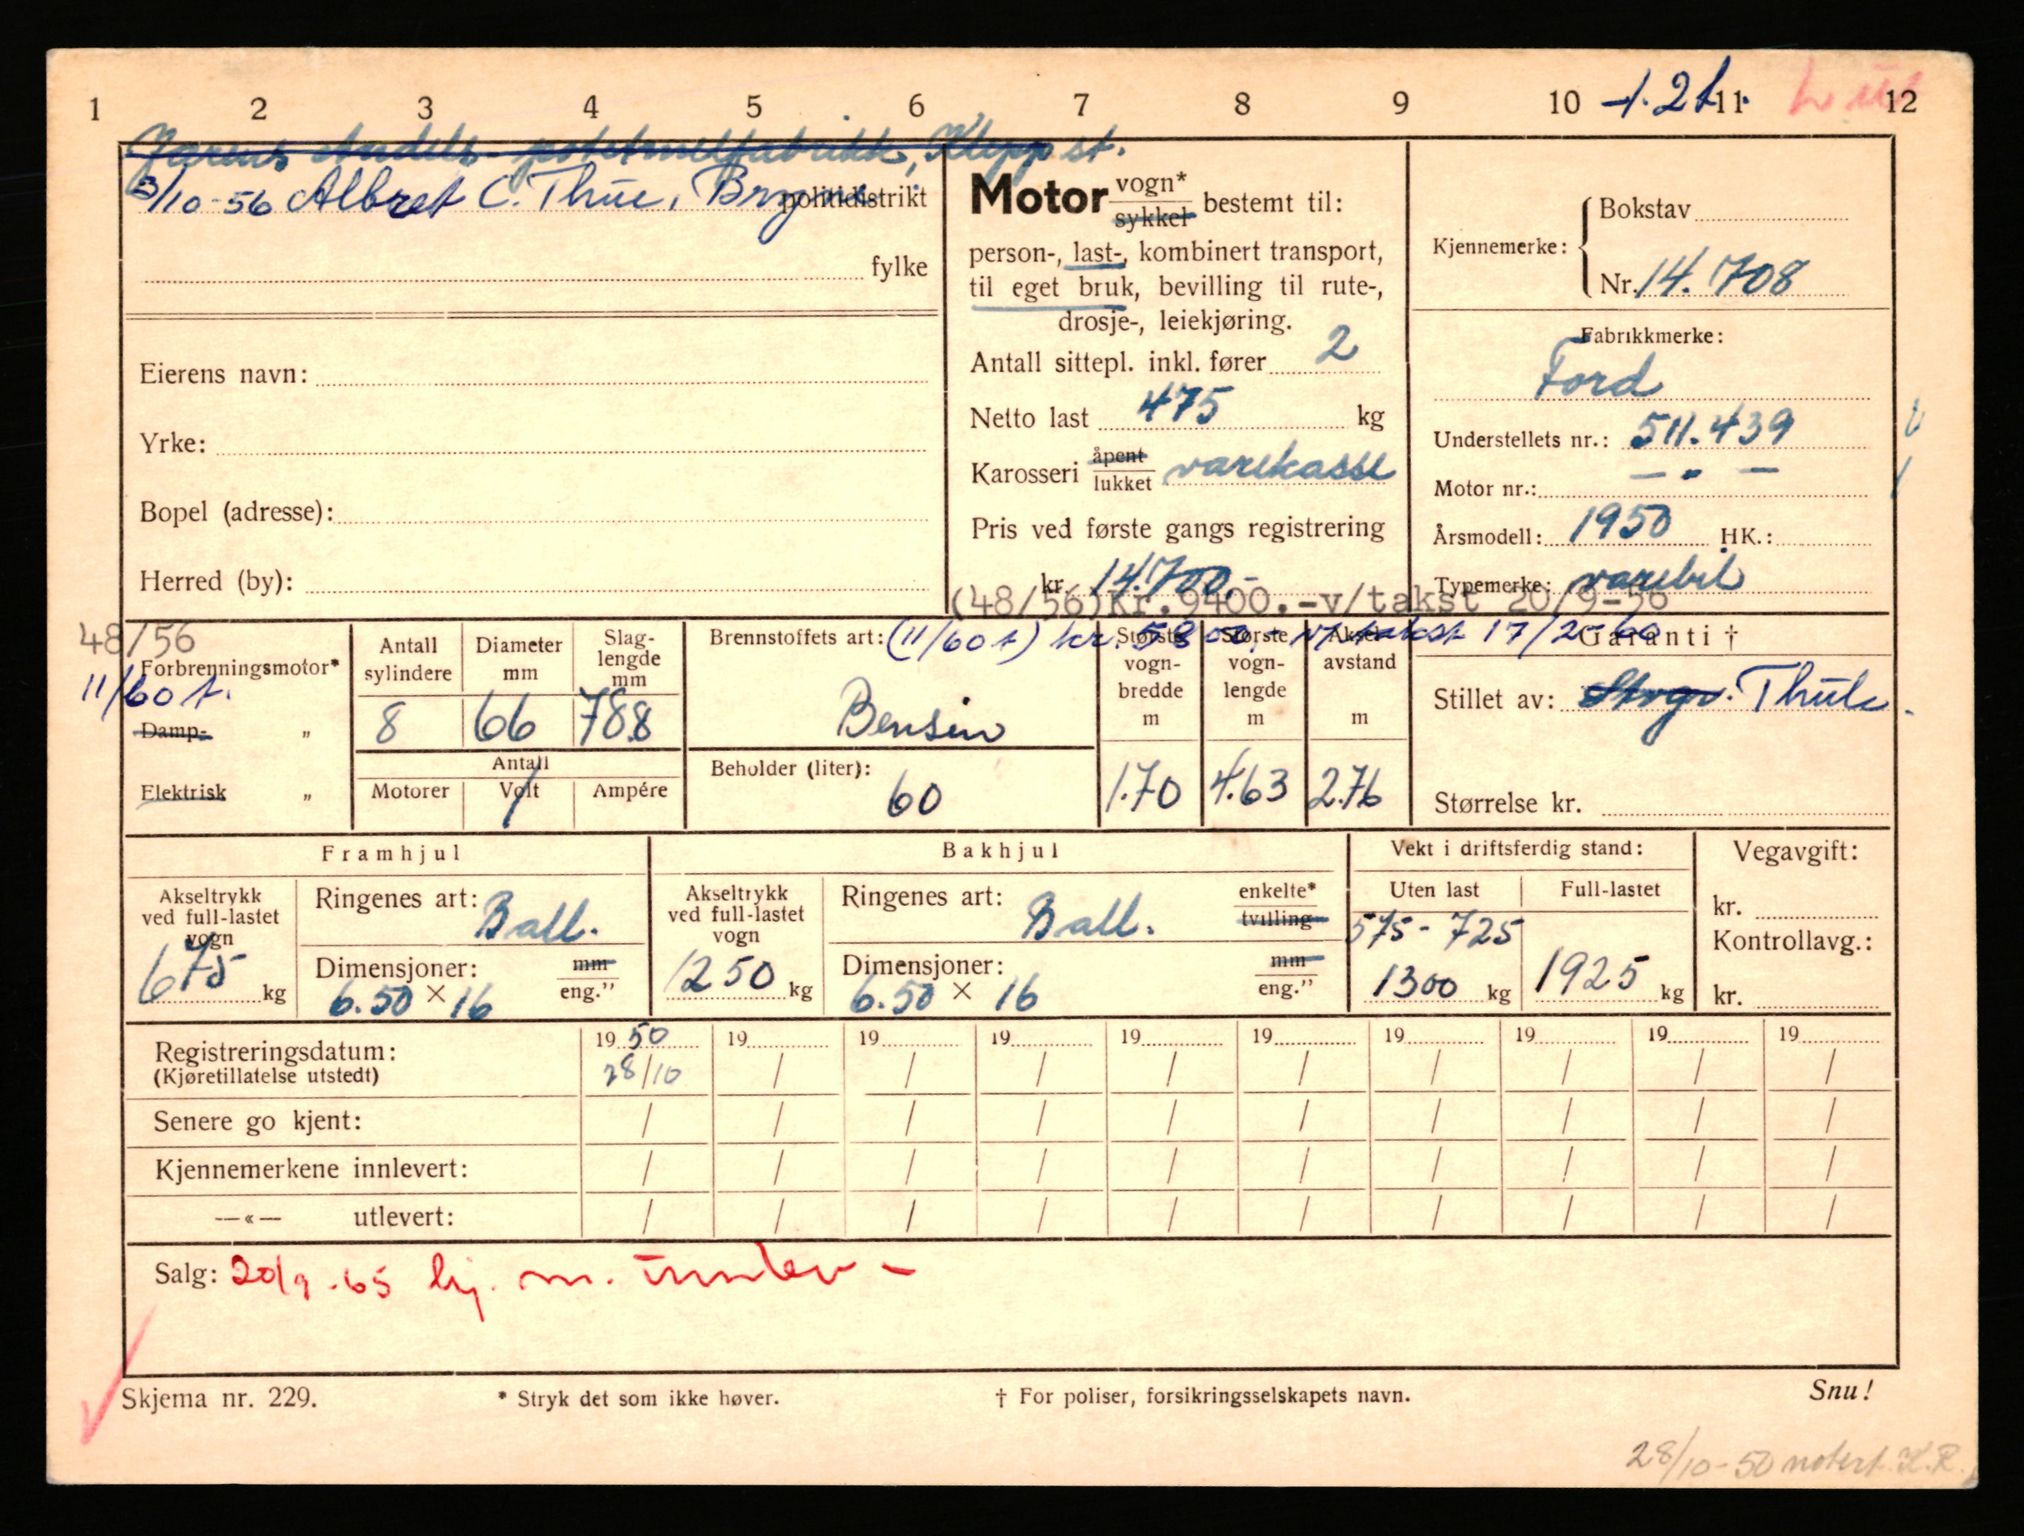 1 2 3 4 5 6 7 8 9 10 11 12
Jærens Andels-potetmelfabrikk, Klepp st.
3/10-56 Albret C. Thue, Bryne politidistrikt
fylke
Eierens navn:
Yrke:
Bopel (adresse):
Herred (by):
Motor vogn* sykkel bestemt til:
person-, last-, kombinert transport,
til eget bruk, bevilling til rute-,
drosje-, leiekjøring.
Antall sittepl. inkl. fører 2
Netto last 475 kg
Karosseri åpent lukket varekasse
Pris ved første gangs registrering
kr. 14.700.-
(48/56) Kr. 9400.-v/takst 20/9-56
(11/60 t) kr. 5800.- v/takst 17/2-60
Kjennemerke: Bokstav
Nr. 14.708
Fabrikkmerke:
Ford
Understellets nr.: 511.439
Motor nr.: — „ —
Årsmodell: 1950 HK.:
Typemerke: varebil
48/56
Forbrenningsmotor*
11/60 t.
Damp- „
Elektrisk „
Antall sylindere 8
Diameter mm 66
Slag-lengde mm 78.8
Antall
Motorer Volt Ampére
Brennstoffets art:
Bensin
Beholder (liter):
60
Største vogn-bredde m 1.70
Største vogn-lengde m 4.63
Aksel-avstand m 2.76
Garanti †
Stillet av: Thule
Størrelse kr.
Framhjul
Akseltrykk ved full-lastet vogn
675 kg
Ringenes art: Ball.
Dimensjoner: mm
6.50 × 16 eng."
Bakhjul
Akseltrykk ved full-lastet vogn
1250 kg
Ringenes art: Ball. enkelte* tvilling
Dimensjoner: mm
6.50 × 16 eng."
Vekt i driftsferdig stand:
Uten last Full-lastet
575 - 725
1300 kg 1925 kg
Vegavgift:
kr.
Kontrollavg.:
kr.
Registreringsdatum: 19 50 19 19 19 19 19 19 19 19 19
(Kjøretillatelse utstedt) 28/10 / / / / / / / / /
Senere go kjent: / / / / / / / / / /
Kjennemerkene innlevert: / / / / / / / / / /
—«— utlevert: / / / / / / / / / /
Salg: 20/9-65 kj. m. innlev -
Skjema nr. 229. * Stryk det som ikke høver. † For poliser, forsikringsselskapets navn. Snu!
28/10-50 notert. K.R.